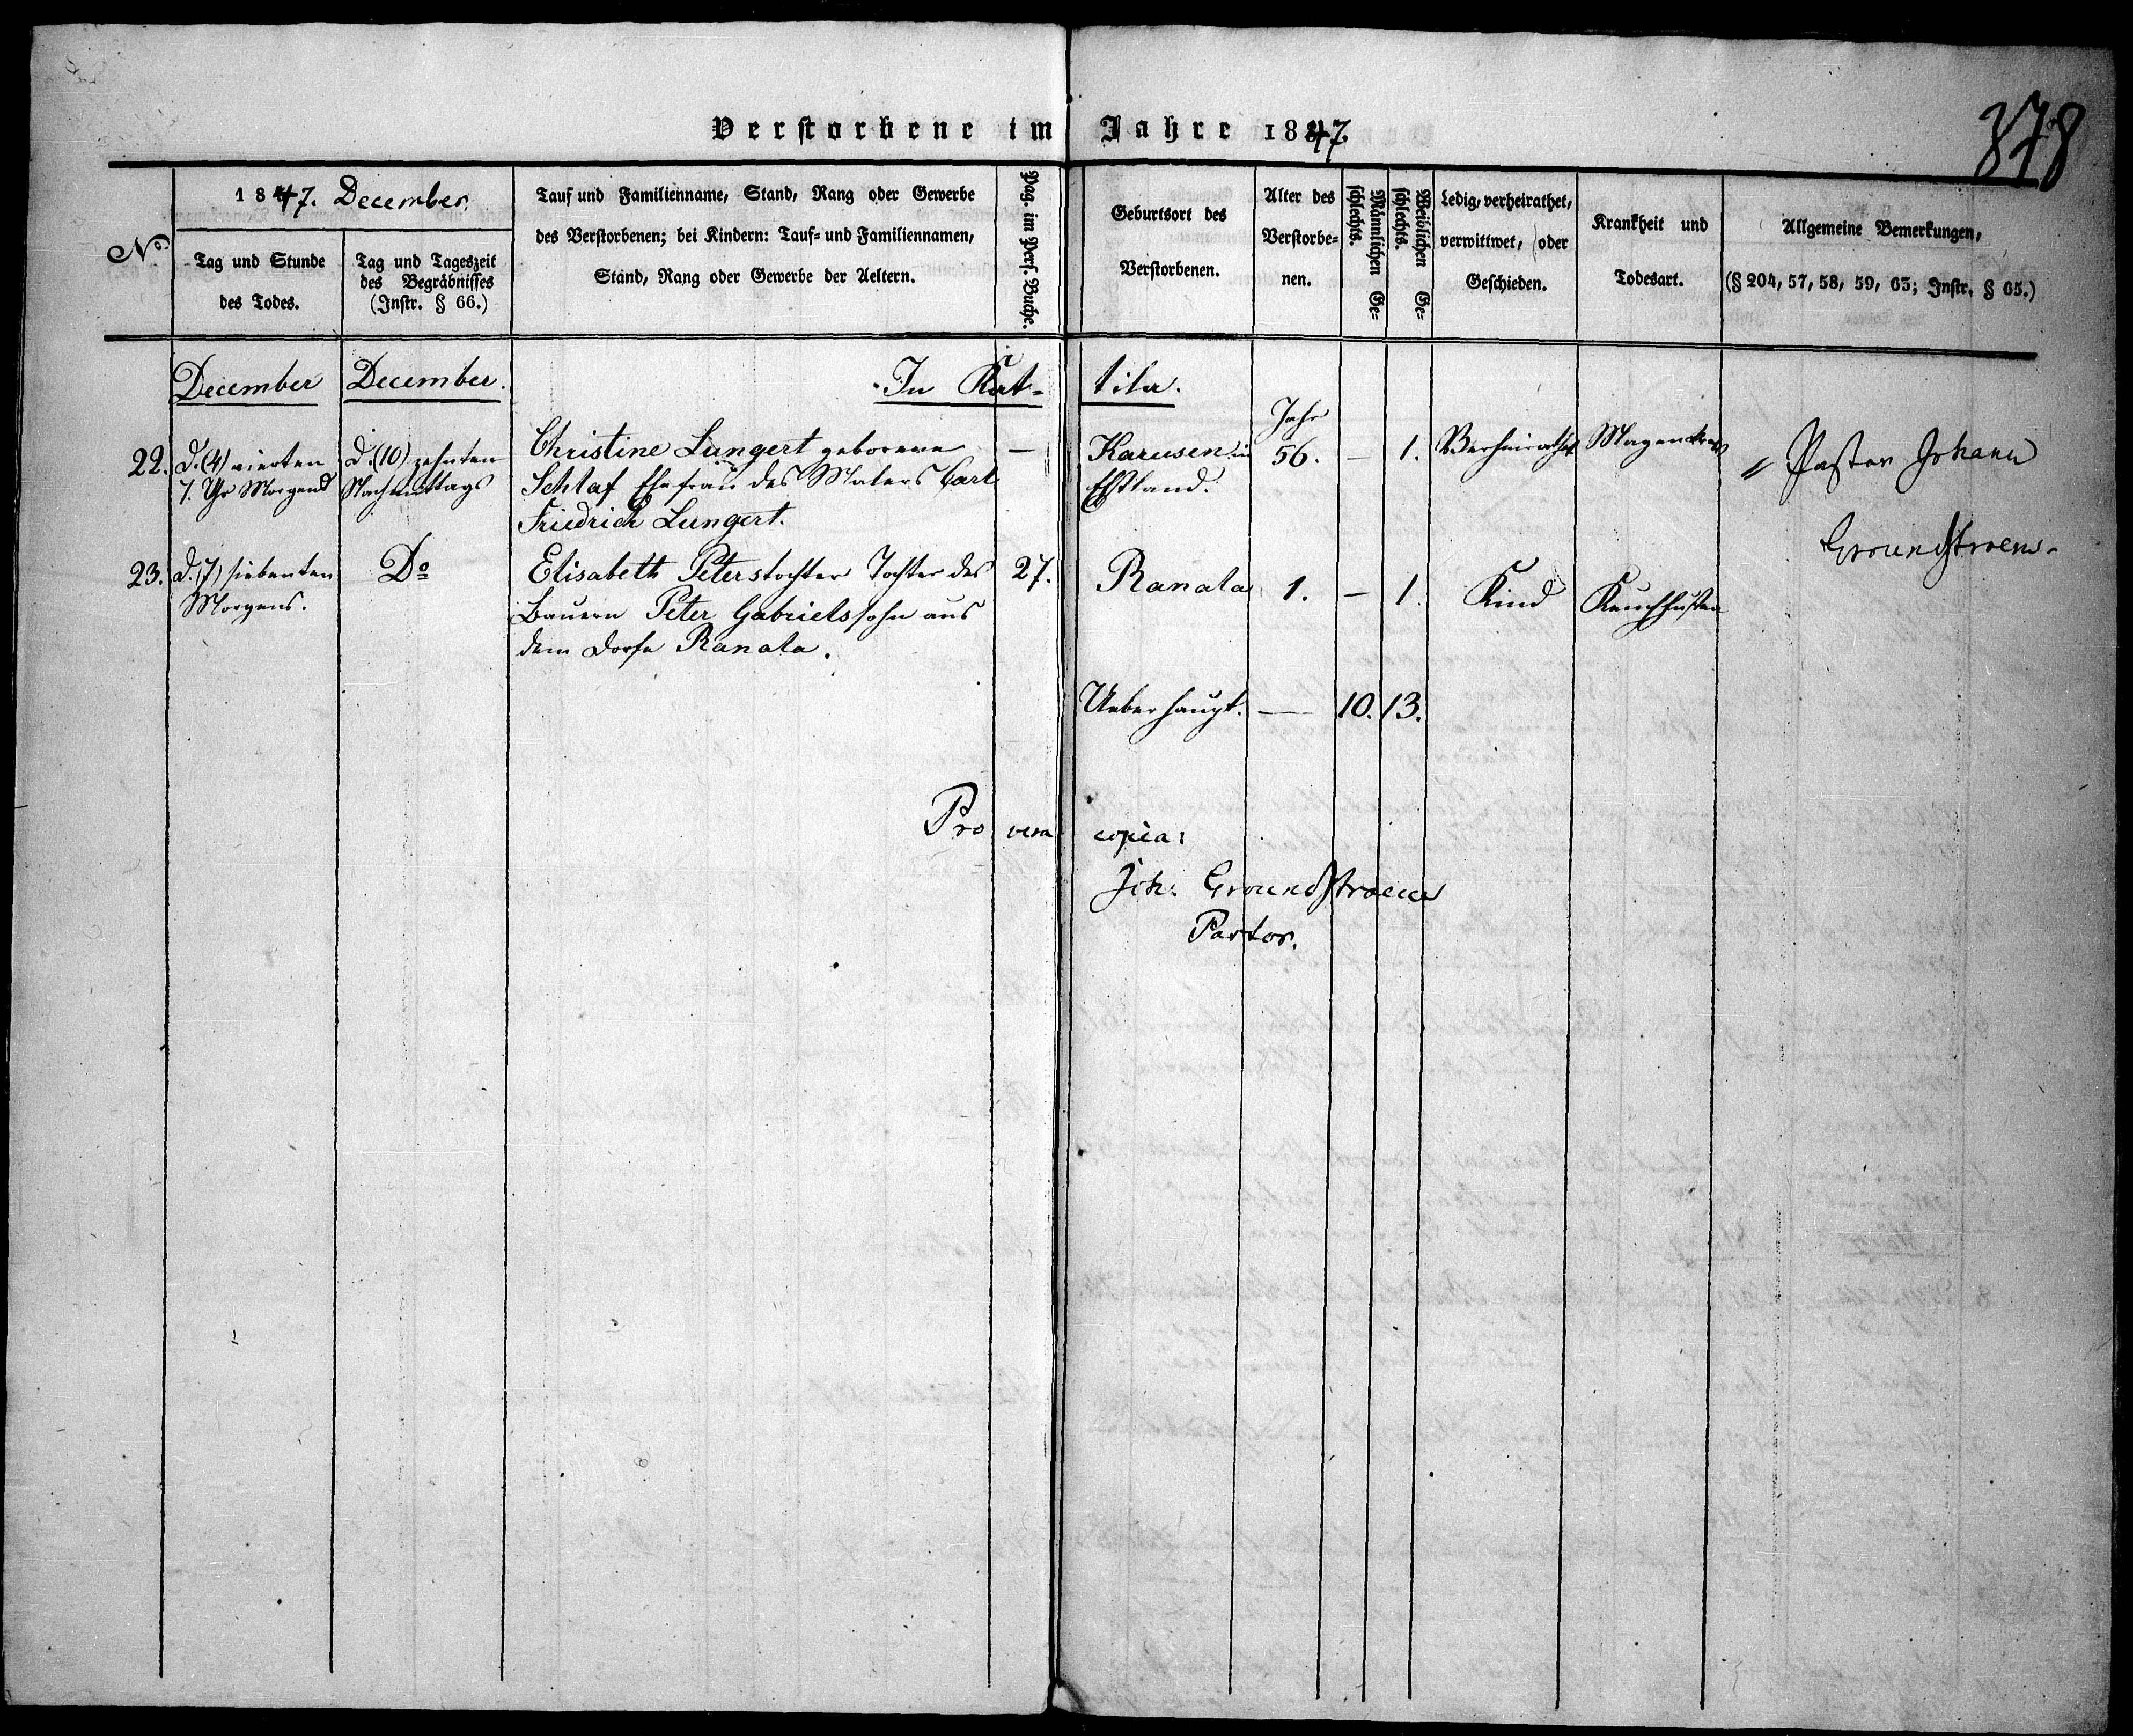 Verstorbene im Jahre 1847.
378
No.
1847. December.
Tag und Stunde
des Todes.
Tag und Tageszeit
des Begräbnisses
(Instr. § 66.)
Tauf und Familienname, Stand, Rang oder Gewerbe
des Verstorbenen; bei Kindern: Tauf- und Familiennamen,
Stand, Rang oder Gewerbe der Aeltern.
Pag. im Pers. Buche.
Geburtsort des
Verstorbenen.
Alter des
Verstorbe-
nen.
Männlichen Ge-
schlechts.
Weiblichen Ge-
schlechts.
Ledig, verheirathet,
verwittwet, oder
Geschieden.
Krankheit und
Todesart.
Allgemeine Bemerkungen,
(§ 204, 57, 58, 59, 63; Instr. § 65.)
December December. In Kat- tila.
22. d. (4) vierten
7. Uhr Morgens
d. (10) zehnten
Nachmittags
Christine Lungert geborene
Schlaf Ehefrau des Malers Carl
Friedrich Lungert.
—
Karusen in
Ehstland.
Jahr
56. — 1. Verheirathet
" Pastor Johann
Groundstroem.
23. d. (7) siebenten
Morgens.
Do
Elisabeth Peterstochter Tochter des
Bauern Peter Gabrielssohn aus
dem Dorfe Ranala.
27.
Ranala 1. — 1. Kind Keuchhusten
Ueberhaupt. — 10. 13.
Pro vera copia:
Joh. Groundstroem
Pastor.